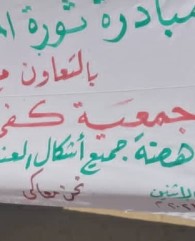 مبادرة ثورة
بالتعاون مع
جمعية كفى
جميع أشكال العنف
نحن معاكي